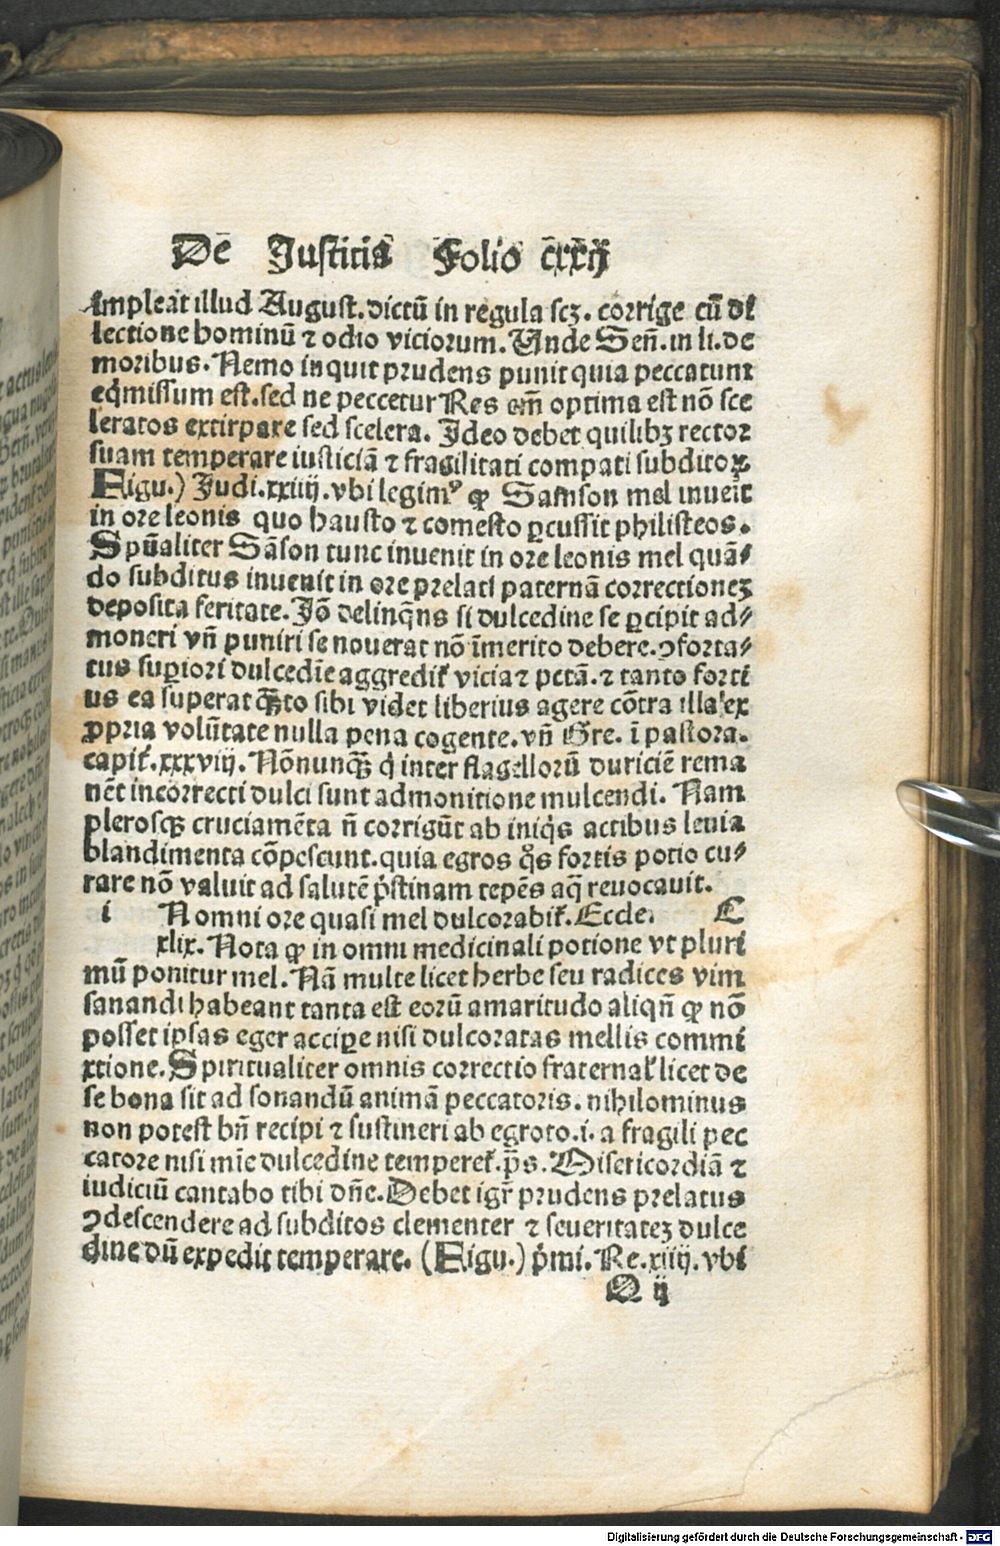 De Justitis Folio cxxij
impleat illud August. dictū in regula scꝫ. corrige cū di
lectione hominū ⁊ odio viciorum. Unde Señ. in li. de
moribus. Nemo inquit prudens punit quia peccatum
eq̄missum est. sed ne peccetur Res em̄ optima est nō sce
leratos extirpare sed scelera. Ideo debet quilibꝫ rector
suam temperare iusticiā ⁊ fragilitati compati subditoꝝ
Figu.) Judi. xxiiij. vbi legimꝰ ꝙ Samson mel inueīt
in ore leonis quo hausto ⁊ comesto ꝑcussit philisteos.
Spūaliter Sāson tunc inuenit in ore leonis mel quā⸗
do subditus inuenit in ore prelati paternā correctioneꝫ
deposita feritate. Iō delinq̄ns si dulcedine se ꝑcipit ad⸗
moneri vn̄ puniri se nouerat nō īmerito debere. ꝯforta⸗
tus suꝑiori dulcedīe aggredit᷑ vicia ⁊ pctā. ⁊ tanto forti
us ea superat qꝫ̄to sibi videt liberius agere cōtra illa ex
ꝓpria volūtate nulla pena cogente. vn̄ Gre. ī pastora.
capit᷑. xxxviij. Nōnunqꝫ̄ q̇ inter flagellorū duriciē rema
nēt incorrecti dulci sunt admonitione mulcendi. Nam
plerosqꝫ cruciamēta n̄ corrigūt ab iniq̇s actibus leuia
blandimenta cōpescunt. quia egros q̊s fortis potio cu⸗
rare nō valuit ad salutē p̓stinam tepēs aq̄ reuocauit.
i Nomni ore quasi mel dulcorabit᷑. Eccle. C
xlix. Nota ꝙ in omni medicinali potione vt pluri
mū ponitur mel. Nā multe licet herbe seu radices vim
sanandi habeant tanta est eorū amaritudo aliqn̄ ꝙ nō
posset ipsas eger acciꝑe nisi dulcoratas mellis commi
xtione. Spiritualiter omnis correctio fraternal᷑ licet de
se bona sit ad sonandū animā peccatoris. nihilominus
non potest bn̄ recipi ⁊ sustineri ab egroto .i. a fragili pec
catore nisi mīe dulcedine temperet᷑. p̄s. Misericordiā ⁊
iudiciū cantabo tibi dn̄e. Debet igr̄ prudens prelatus
ꝯdescendere ad subditos clementer ⁊ seueritateꝫ dulce
dine dū expedit temperare. (Figu.) p̓mi. Re. xiiij. vbi
Q ij
Digitalisierung gefördert durch die Deutsche Forschungsgemeinschaft - DFG